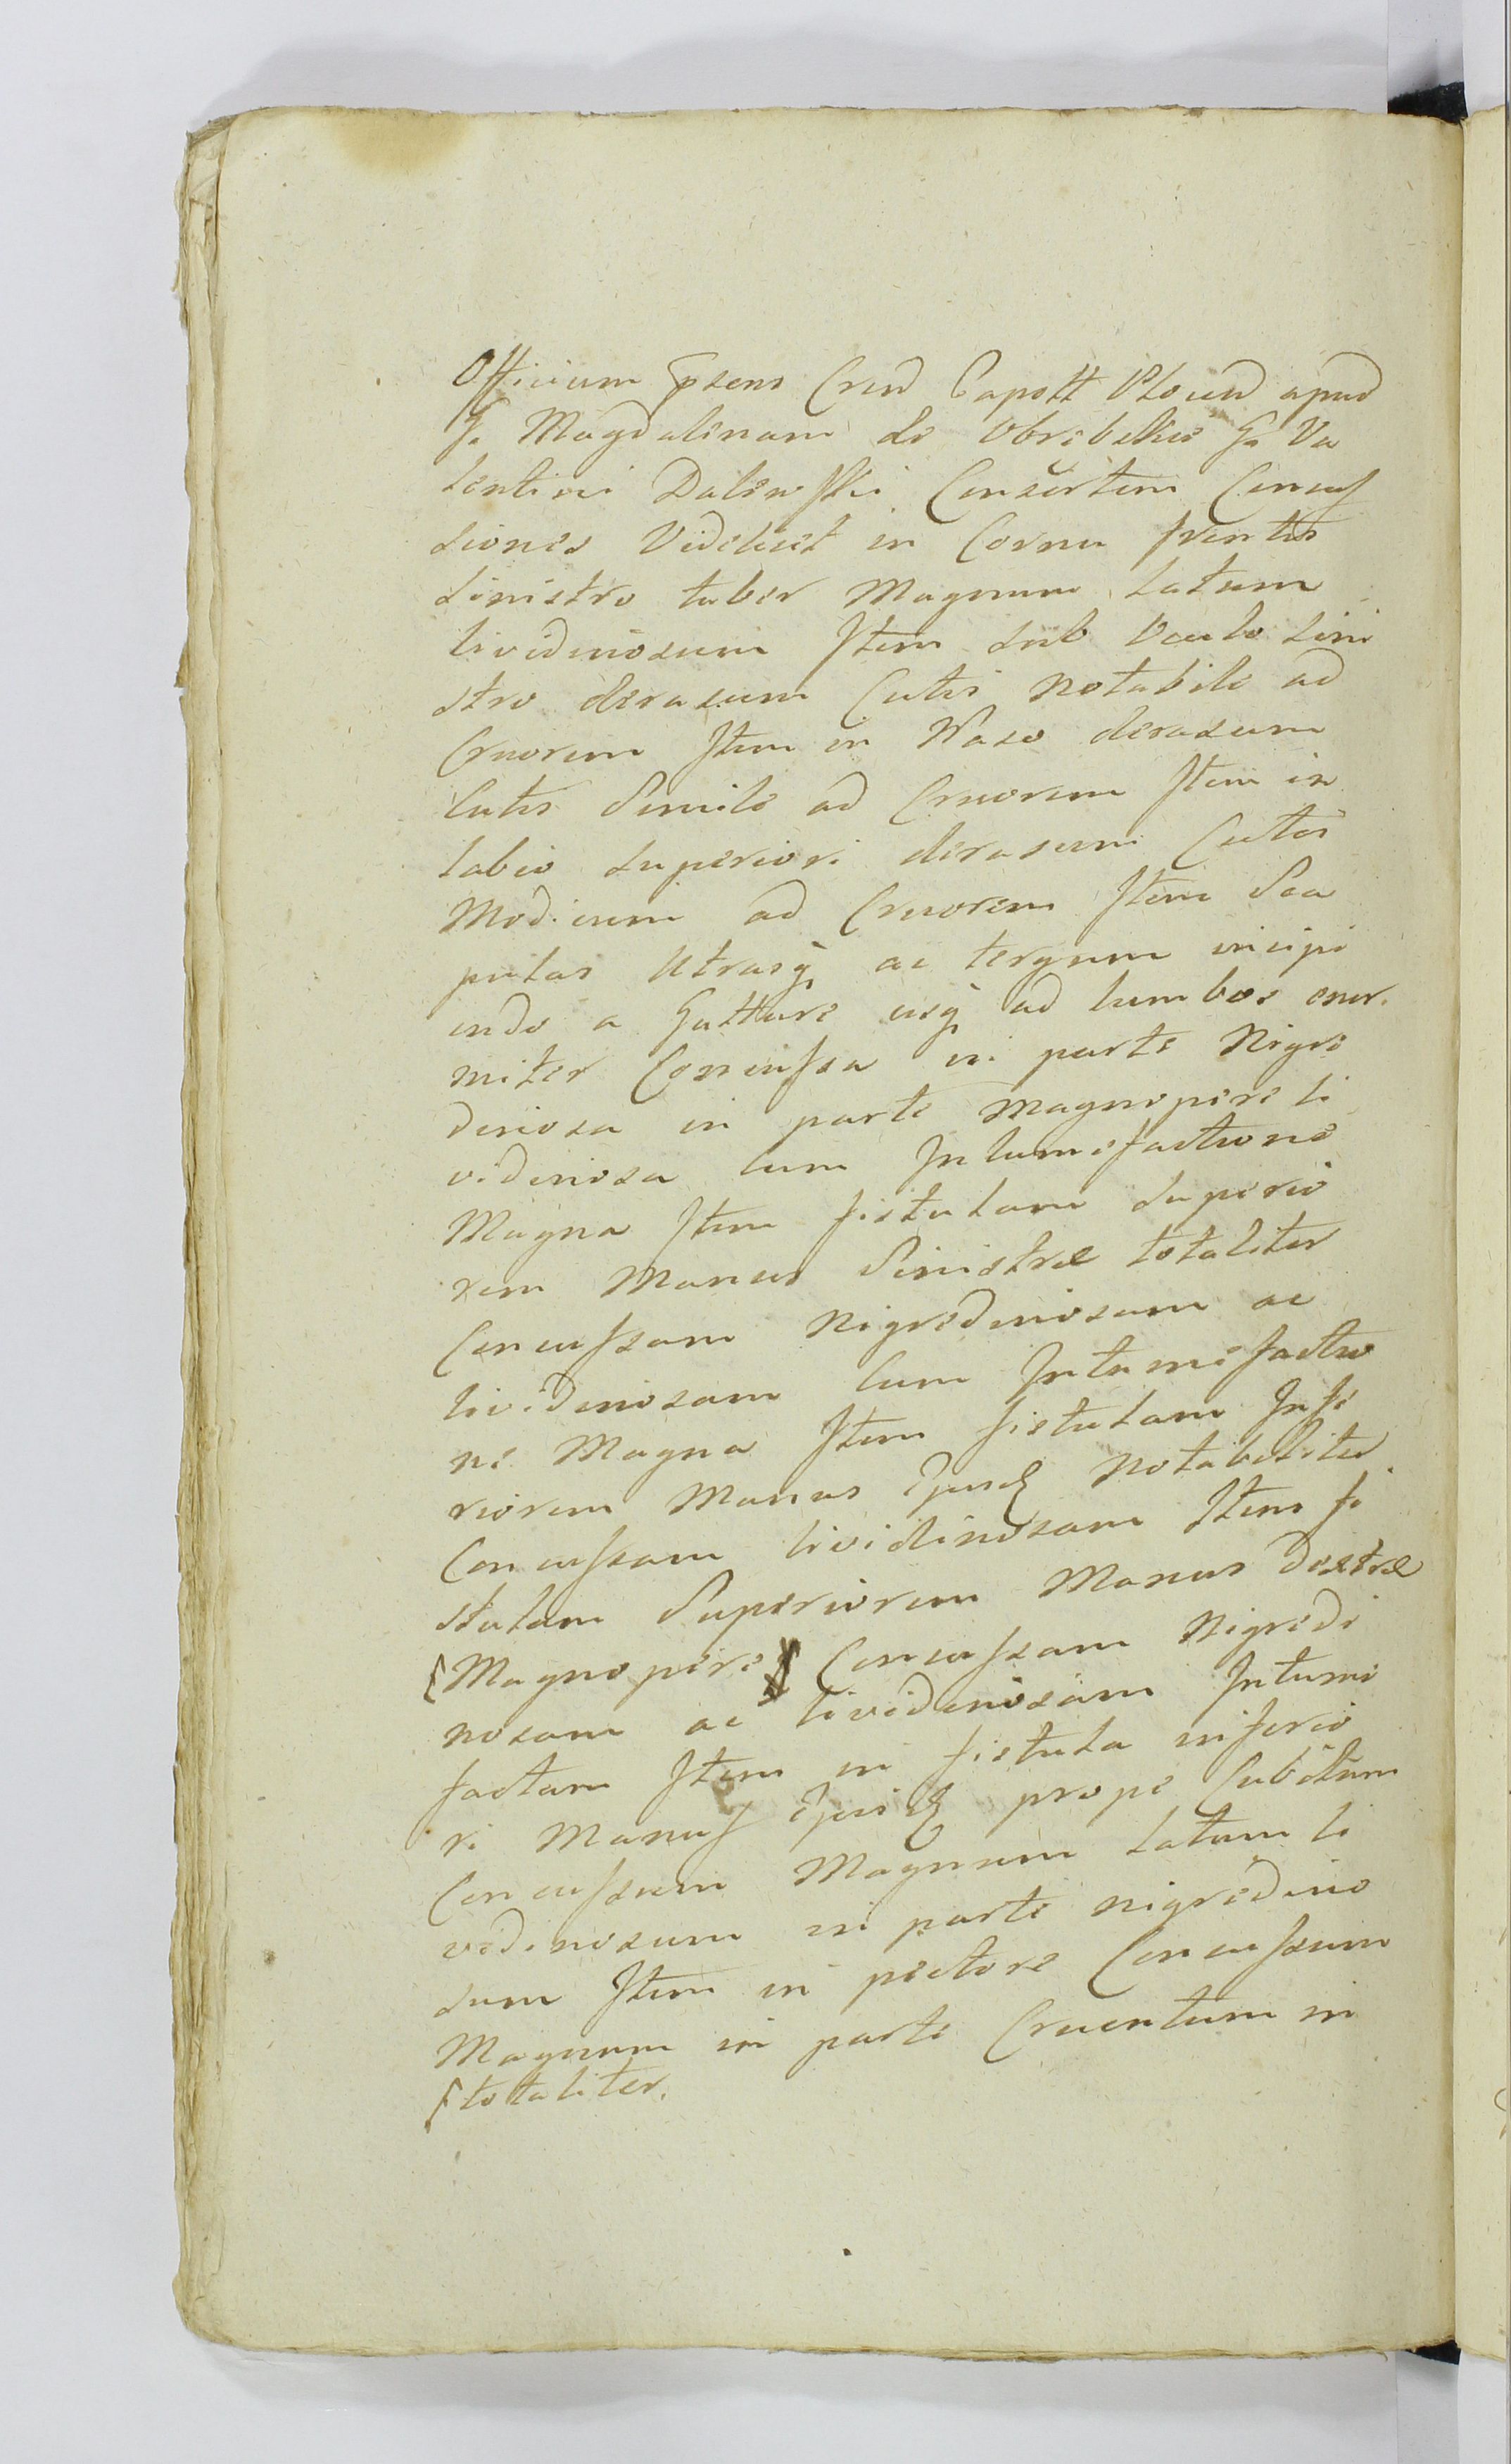 Officium pzens Crend Capostt Vscend apud
G. Magdalenam de Obrebskie G. Va
lentini Dalewskii Consortem Concus
siones Videlicet in Cornu frontis
sinistro tuber Magnum latum
lividinosum Item sub Oculo sini
stro derasum Cutis notabile ad
Cruorem Item in Naso derasum
Cutis Simile ad Cruorem Item in
labio superiori derasum Cutis
Modicum ad Cruorem Item Sca
pulas Utrasq ac tergum incipi
endo a Gutture usq ad lumbos enor
miter Concussa in parte Nigre
dinosa in parte magnopere li
vidinosa cum Intumefactione
Magna Item fistulam superio
rem Manus Sinistræ totaliter
Concussam Nigredinosam ac
lividinosam cum Intumefactio
ne Magna Item fistulam Infe
riorem Manus ejusd notabiliter
Concussam lividinosam Item fi
stulam Superiorem Manus dextræ
Magnopere Concussam Nigredi
nosam ac lividinosam Intume
factam Item in fistula inferio
ri Manus ejusd prope Cubitum
Concussum Magnum latum li
vidinosum in parte nigredino
sum Item in pectore Concussum
Magnum in parte Cruentum in
totaliter.